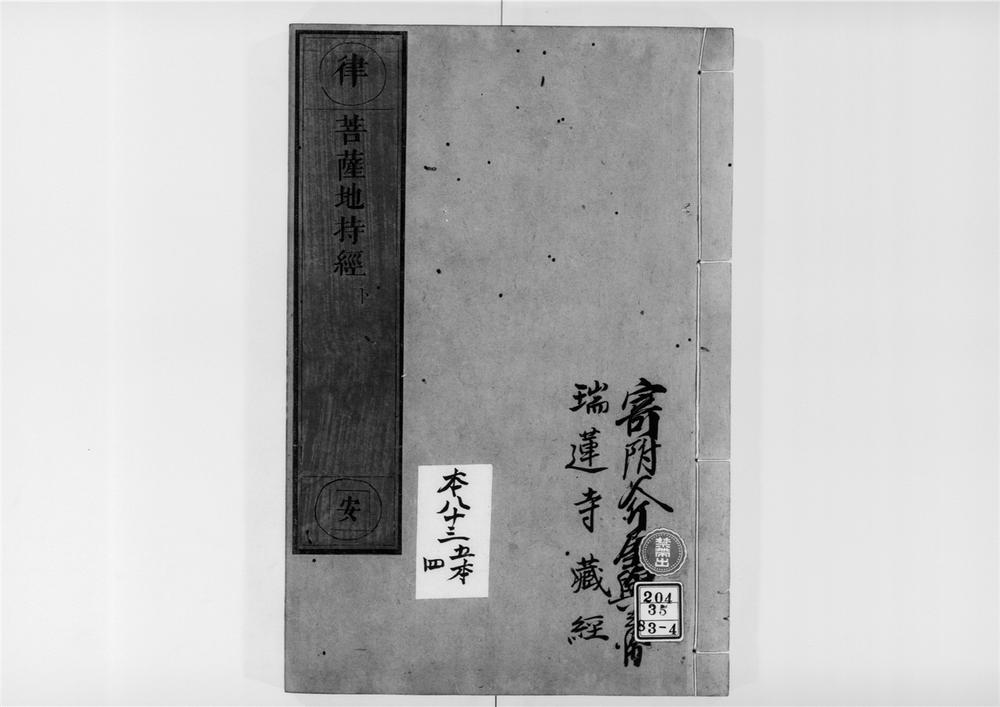 寄附斧屋與
瑞蓮寺藏經
律
菩薩地持經
卜
安
本八十三
五本
四
禁帶出
204
35
83-4